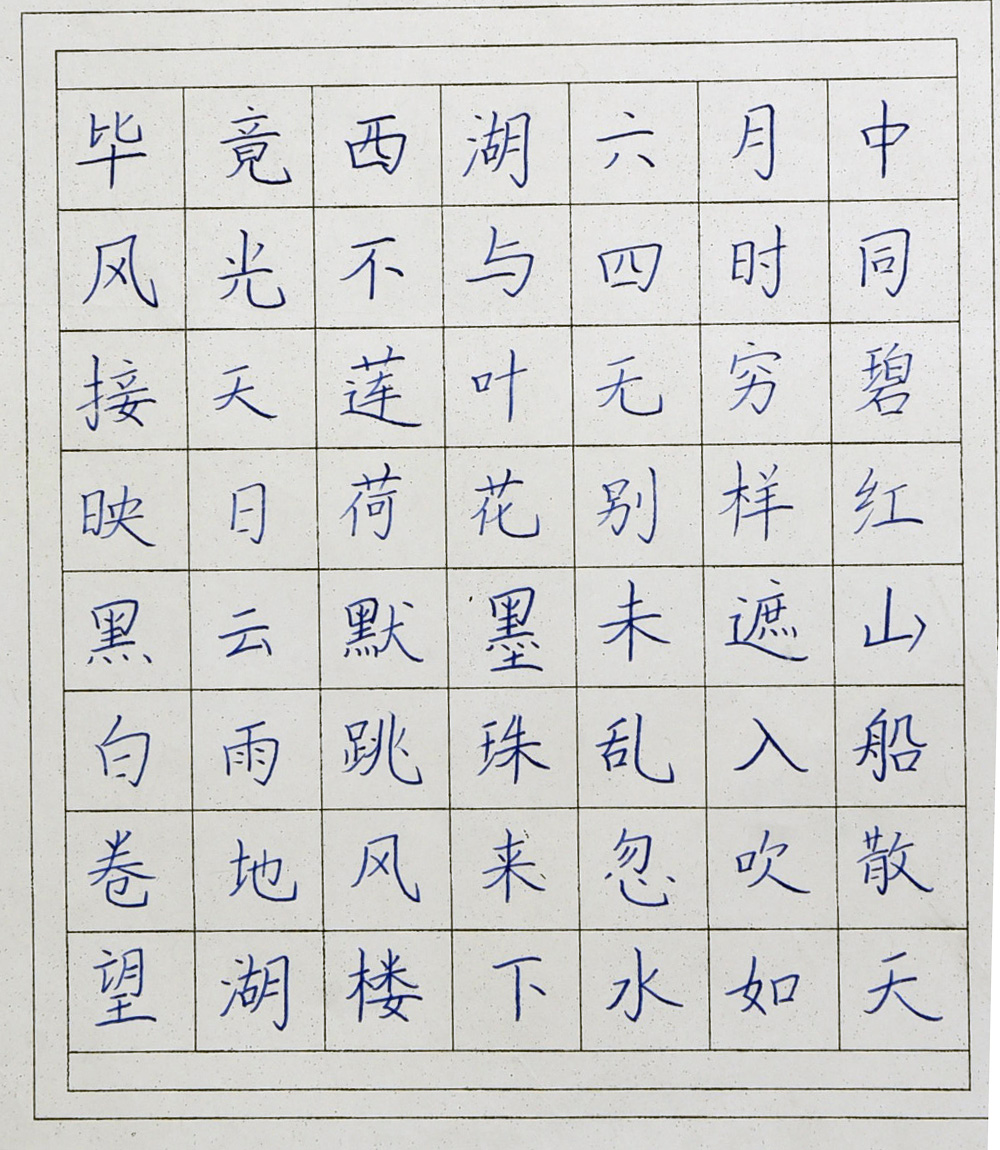 毕竟西湖六月中
风光不与四时同
接天莲叶无穷碧
映日荷花别样红
黑云默墨未遮山
白雨跳珠乱入船
卷地风来忽吹散
望湖楼下水如天